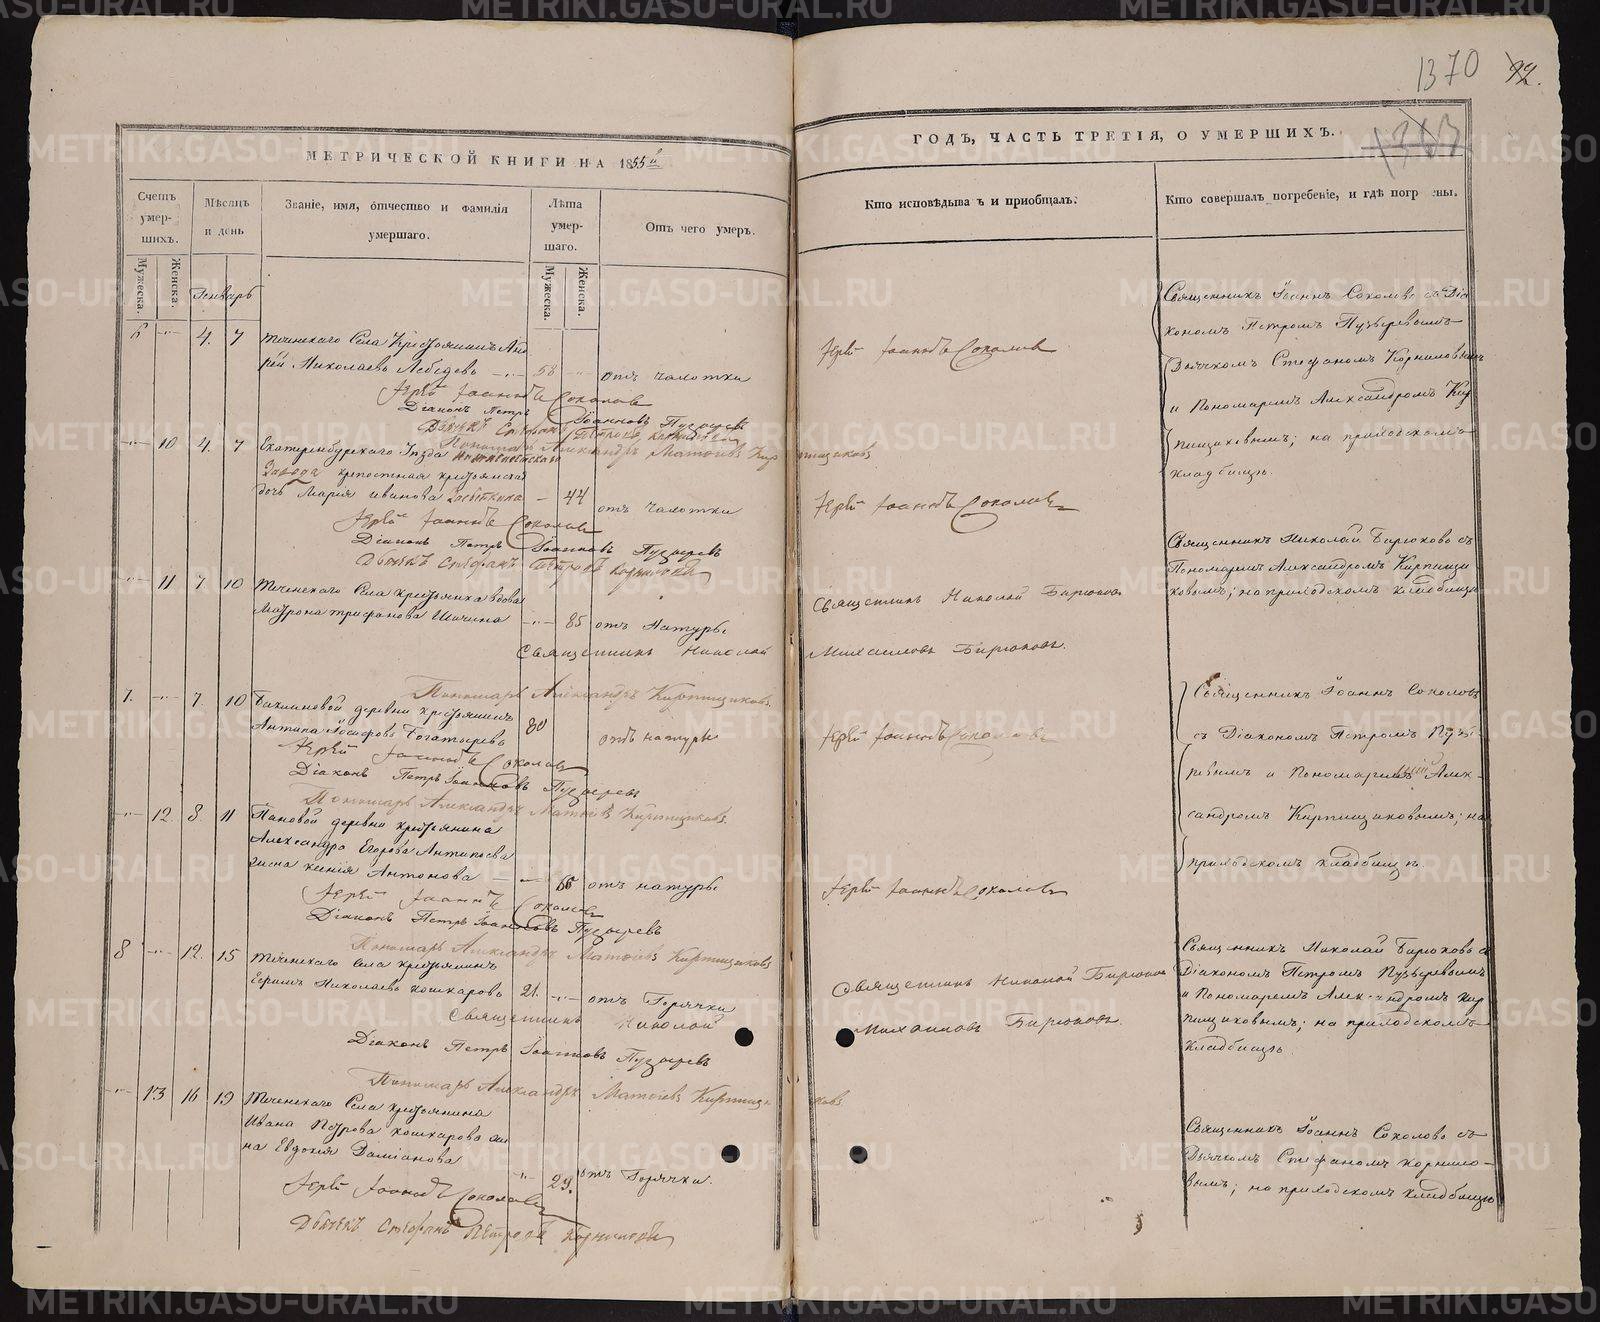 1370
МЕТРИЧЕСКОЙ КНИГИ НА 1855й
ГОДЪ, ЧАСТЬ ТРЕТІЯ, О УМЕРШИХЪ.
Счетъ умер-шихъ.
Мужеска.
Женска.
Мѣсяцъ и день
Званіе, имя, отчество и фамилія умершаго.
Лѣта умер-шаго.
Мужеска.
Женска.
Отъ чего умеръ.
Кто исповѣдыва ъ и пріобщалъ.
Кто совершалъ погребеніе, и гдѣ погр ены.
Генварь
4. 7 Теченскаго Села Крестьянинъ Анд
рей Николаевъ Лебедевъ 58 отъ чахотки
Іерей Іоаннъ Соколовъ
Іерей Іоаннъ Соколовъ
Діаконъ Петръ Іоанновъ Пузыревъ
Дьячекъ Стефанъ Петровъ Корниловъ
Пономарь Александръ Матѳіевъ Кирпищиковъ
Священникъ Іоаннъ Соколовъ съ Діа
кономъ Петромъ Пузыревымъ
Дьячкомъ Стефаномъ Корниловымъ
и Пономаремъ Александромъ Кир
пищиковымъ; на приходскомъ
кладбищѣ.
10 4. 7 Екатеринбурскаго Уѣзда
Завода крепостная крестьянская
дочь Марія Иванова 44 отъ чахотки
Іерей Іоаннъ Соколовъ
Іерей Іоаннъ Соколовъ
Діаконъ Петръ Іоанновъ Пузыревъ
Дьячекъ Стефанъ Петровъ Корниловъ
11 7 10 Теченскаго Села крестьянка вдова
Матрона Трифонова Шичина 85 отъ Натуры
Священникъ Николай Бирюковъ
Священникъ Николай Михаиловъ Бирюковъ.
Пономарь Александръ Кирпищиковъ
Священникъ Николай Бирюковъ съ
Пономаремъ Александромъ Кирпищи
ковымъ; на приходскомъ кладбищѣ
7. 7. 10 Баклановой деревни крестьянинъ
Антипа Іосифовъ Богатыревъ 80 отъ натуры
Іерей Іоаннъ Соколовъ
Іерей Іоаннъ Соколовъ
Діаконъ Петръ Іоанновъ Пузыревъ
Пономарь Александръ Матѳіевъ Кирпищиковъ.
Священникъ Іоаннъ Соколовъ
съ Діакономъ Петромъ Пузы
ревымъ и Пономаремъ Алек-
сандромъ Кирпищиковымъ; на
приходскомъ кладбищѣ.
12. 8. 11 Пановой деревни крестьянина
Александра Егорова Антипоева
жена Ксенія Антонова 66 отъ натуры
Іерей Іоаннъ Соколовъ
Іерей Іоаннъ Соколовъ
Діаконъ Петръ Іоанновъ Пузыревъ
Пономарь Александръ Матѳіевъ Кирпищиковъ
8 12. 15 Теченскаго Села крестьянинъ
Ефимъ Николаевъ Кошкаровъ 21. отъ Горячки
Священникъ Николай Бирюковъ
Священникъ Николай Михаиловъ Бирюковъ.
Діаконъ Петръ Іоанновъ Пузыревъ
Пономарь Александръ Матѳіевъ Кирпищиковъ
Священникъ Николай Бирюковъ съ
Діакономъ Петромъ Пузыревымъ
и Пономаремъ Александромъ Кир
пищиковымъ; на приходскомъ
кладбищѣ.
13 16 19 Теченскаго Села крестьянина
Ивана Петрова Кошкарова же
на Евдокія Даміанова 29. отъ Горячки.
Іерей Іоаннъ Соколовъ
Дьячекъ Стефанъ Петровъ Корниловъ
Священникъ Іоаннъ Соколовъ съ
Дьячкомъ Стефаномъ Корнило-
вымъ; на приходскомъ кладбищѣ
METRIKI.GASO-URAL.RU